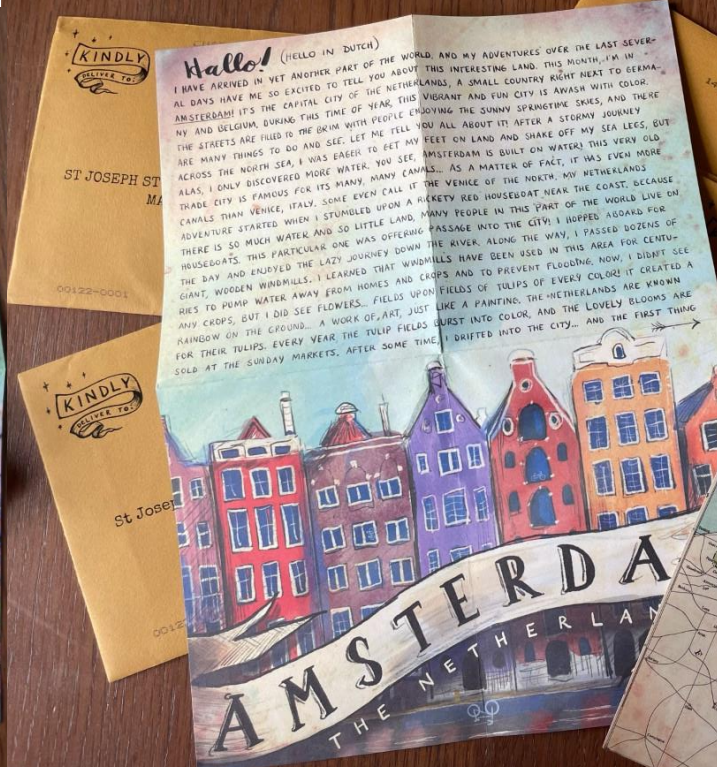 KINDLY
DELIVER TO:
ST JOSEPH ST
MA
00122-0001
KINDLY
DELIVER TO:
St Josep
0012
Hallo! (HELLO IN DUTCH)
I HAVE ARRIVED IN YET ANOTHER PART OF THE WORLD, AND MY ADVENTURES OVER THE LAST SEVER-
AL DAYS HAVE ME SO EXCITED TO TELL YOU ABOUT THIS INTERESTING LAND. THIS MONTH, I'M IN
AMSTERDAM! IT'S THE CAPITAL CITY OF THE NETHERLANDS, A SMALL COUNTRY RIGHT NEXT TO GERMA-
NY AND BELGIUM. DURING THIS TIME OF YEAR, THIS VIBRANT AND FUN CITY IS AWASH WITH COLOR.
THE STREETS ARE FILLED TO THE BRIM WITH PEOPLE ENJOYING THE SUNNY SPRINGTIME SKIES, AND THERE
ARE MANY THINGS TO DO AND SEE. LET ME TELL YOU ALL ABOUT IT! AFTER A STORMY JOURNEY
ACROSS THE NORTH SEA, I WAS EAGER TO GET MY FEET ON LAND AND SHAKE OFF MY SEA LEGS, BUT
ALAS, I ONLY DISCOVERED MORE WATER. YOU SEE, AMSTERDAM IS BUILT ON WATER! THIS VERY OLD
TRADE CITY IS FAMOUS FOR ITS MANY, MANY CANALS... AS A MATTER OF FACT, IT HAS EVEN MORE
CANALS THAN VENICE, ITALY. SOME EVEN CALL IT THE VENICE OF THE NORTH. MY NETHERLANDS
ADVENTURE STARTED WHEN I STUMBLED UPON A RICKETY RED HOUSEBOAT NEAR THE COAST. BECAUSE
THERE IS SO MUCH WATER AND SO LITTLE LAND, MANY PEOPLE IN THIS PART OF THE WORLD LIVE ON
HOUSEBOATS. THIS PARTICULAR ONE WAS OFFERING PASSAGE INTO THE CITY! I HOPPED ABOARD FOR
THE DAY AND ENJOYED THE LAZY JOURNEY DOWN THE RIVER. ALONG THE WAY, I PASSED DOZENS OF
GIANT, WOODEN WINDMILLS. I LEARNED THAT WINDMILLS HAVE BEEN USED IN THIS AREA FOR CENTU-
RIES TO PUMP WATER AWAY FROM HOMES AND CROPS AND TO PREVENT FLOODING. NOW, I DIDN'T SEE
ANY CROPS, BUT I DID SEE FLOWERS... FIELDS UPON FIELDS OF TULIPS OF EVERY COLOR! IT CREATED A
RAINBOW ON THE GROUND... A WORK OF ART, JUST LIKE A PAINTING. THE NETHERLANDS ARE KNOWN
FOR THEIR TULIPS. EVERY YEAR, THE TULIP FIELDS BURST INTO COLOR, AND THE LOVELY BLOOMS ARE
SOLD AT THE SUNDAY MARKETS. AFTER SOME TIME, I DRIFTED INTO THE CITY... AND THE FIRST THING
AMSTERDA
THE NETHERLAN